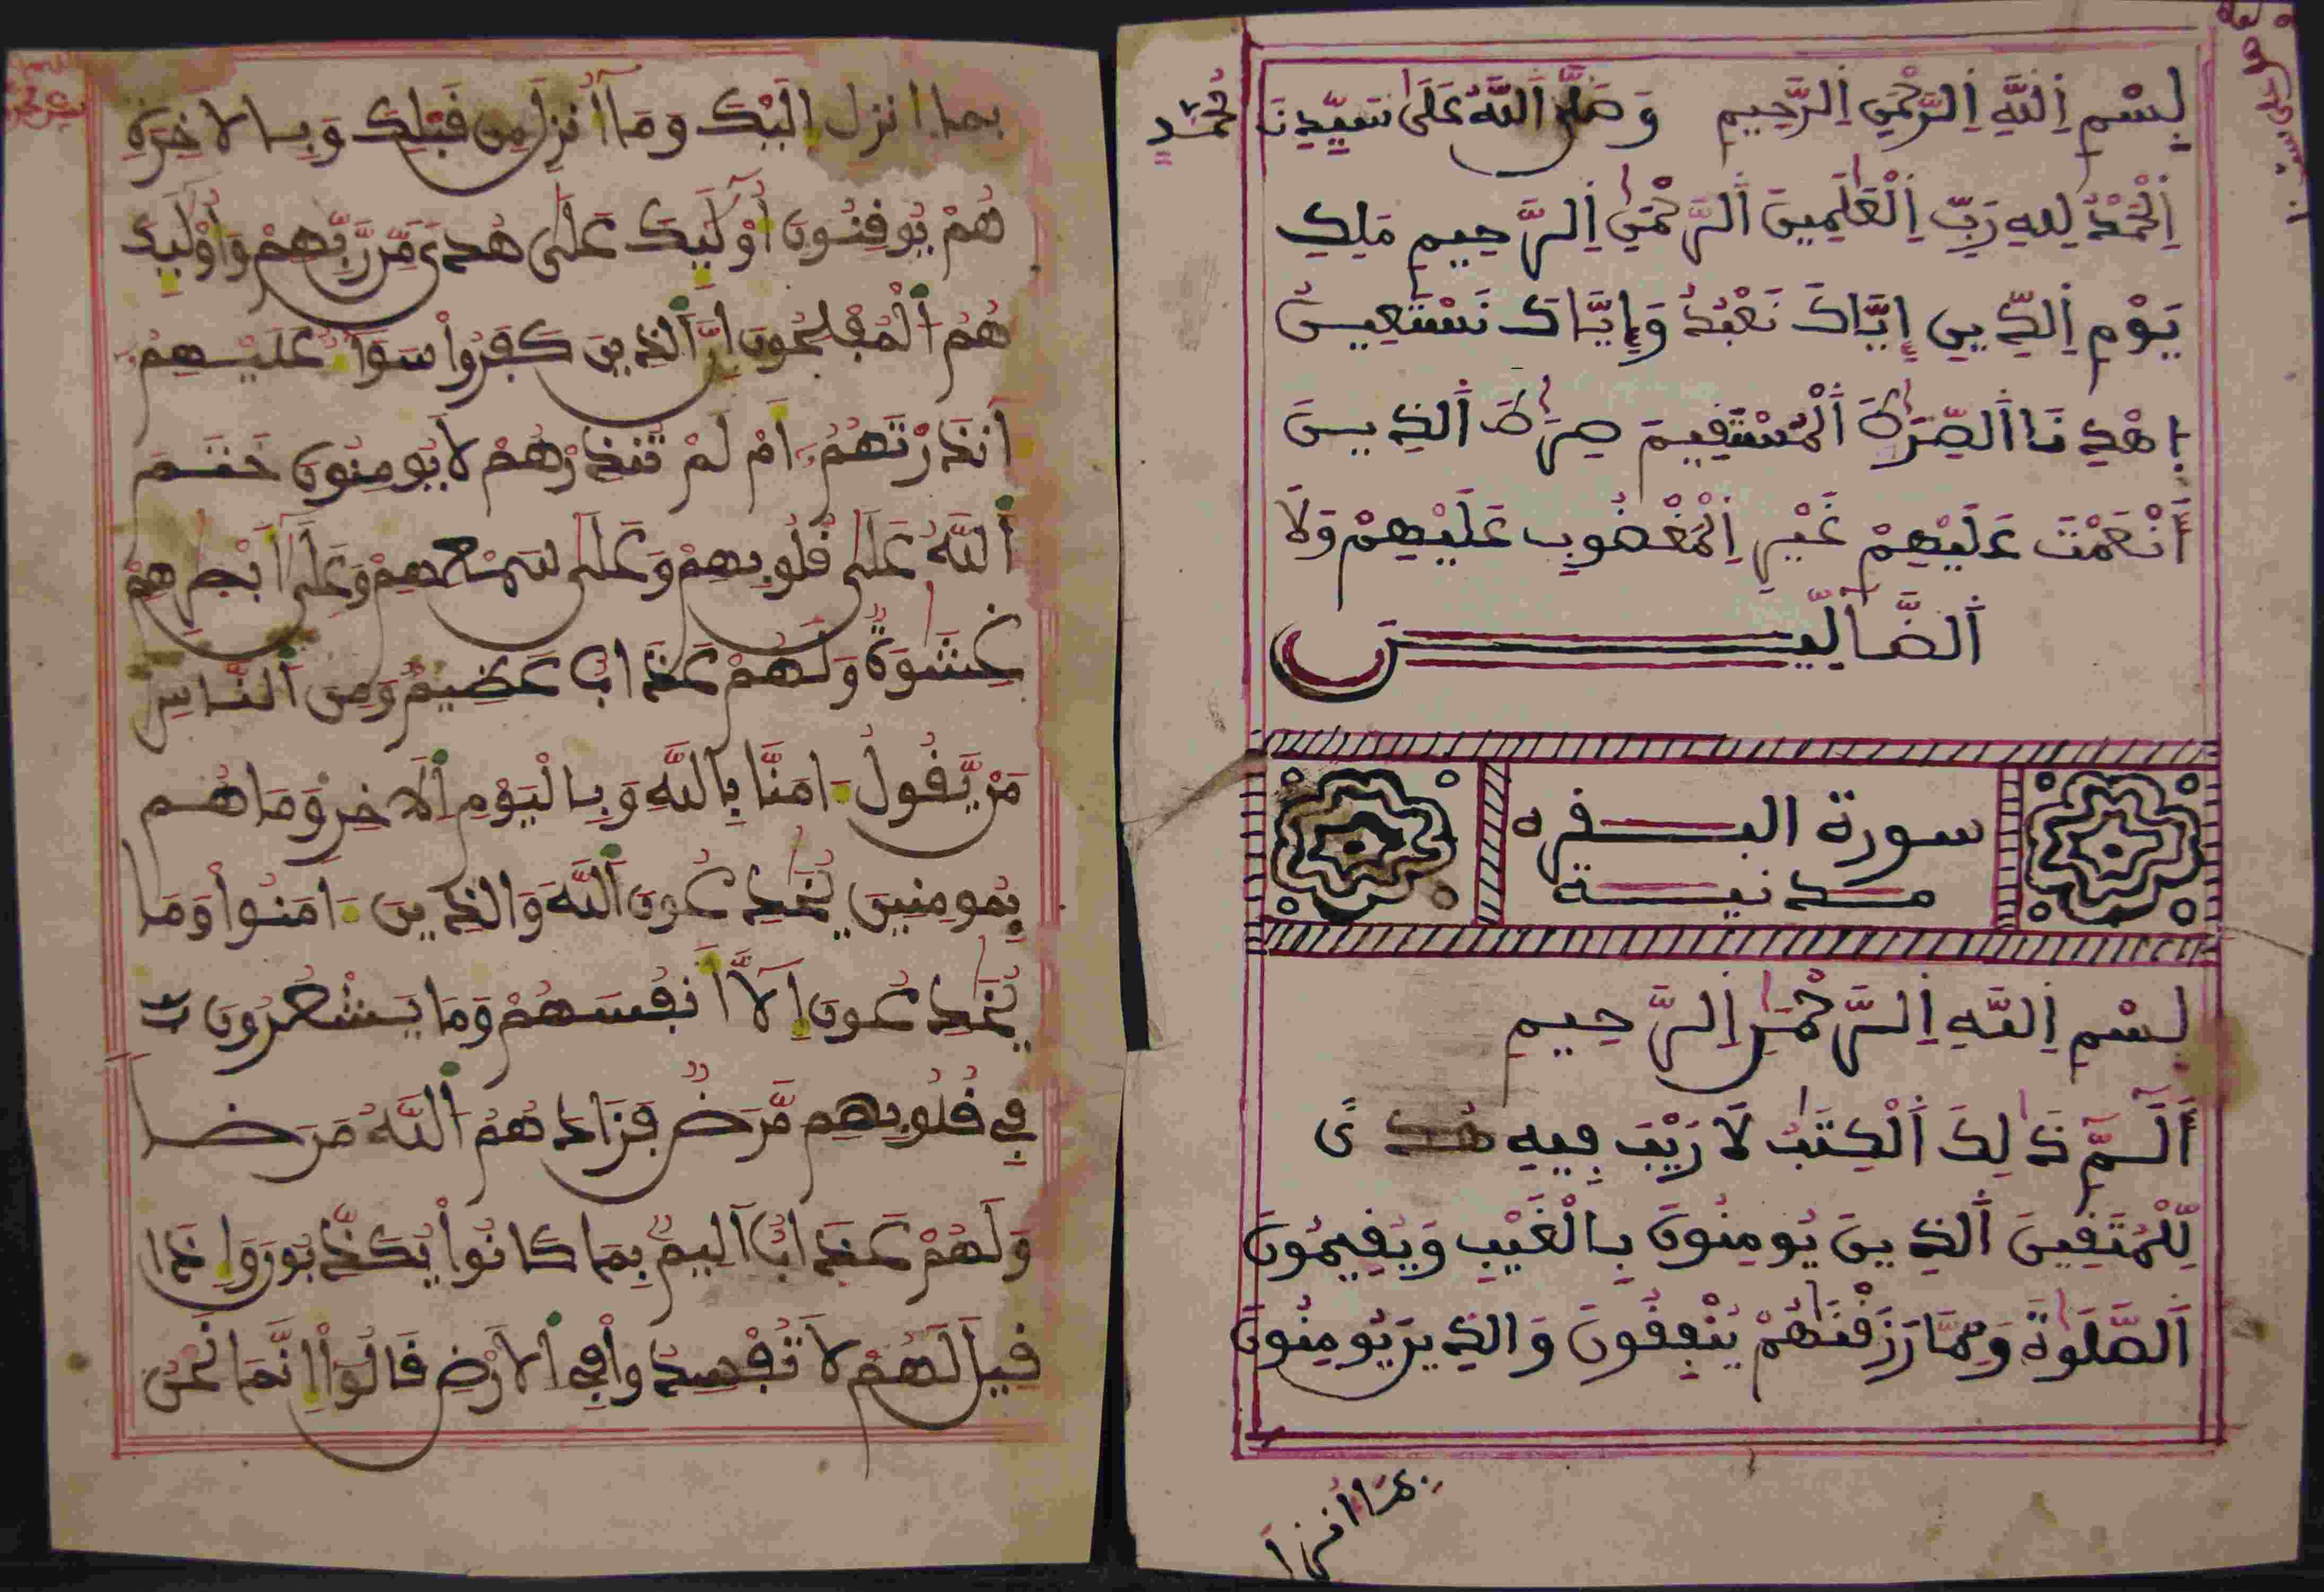 بِسْمِ اِللَّهِ اِلرَّحْمَٰنِ اِلرَّحِيمِ وَصَلَّى اَللَّهُ عَلَىٰ سَيِّدِنَا مُحَمَّدٍ
اِلْحَمْدُ لِلهِ رَبِّ اِلْعَٰلَمِينَ اَلرَّحْمَٰنِ اِلرَّحِيمِ مَلِكِ
يَوْمِ اِلدِّينِ إِيَّاكَ نَعْبُدُ وَإِيَّاكَ نَسْتَعِينُ
اِهْدِنَا اَلصِّرَٰطَ اَلْمُسْتَفِيمَ صِرَٰطَ اَلذِينَ
أَنْعَمْتَ عَلَيْهِمْ غَيْرِ اِلْمَغْضُوبِ عَلَيْهِمْ وَلَا
اَلضَّآلِّينَ
سورة البفره
مدنية
بِسْمِ اِللَّهِ اِلرَّحْمَٰنِ اِلرَّحِيمِ
أَلَٓمِّٓ ذَٰلِكَ اَلْكِتَٰبُ لَا رَيْبَ فِيهِ هُدىً
لِّلْمُتَّفِينَ اَلذِينَ يُومِنُونَ بِالْغَيْبِ وَيُفِيمُونَ
اَلصَّلَوٰةَ وَمِمَّا رَزَفْنَٰهُمْ يُنْفِفُونَ وَالذِينَ يُومِنُونَ
بما أنزل
بما انزل إلَيْكَ وَمَآ أُنزِلَ مِن فَبْلِكَ وَبِالاخِرَةِ
هُمْ يُوفِنُونَ أُوْلَٰٓئِكَ عَلَىٰ هُدىً مِّن رَّبِّهِمْ وَأُوْلَٰٓئِكَ
هُمُ اَلْمُفْلِحُونَ إِنَّ اَلذِينَ كَفَرُواْ سَوَآءٌ عَلَيْهِمُۥٓ
ءَآنذَرْتَهُمُۥٓ أَمْ لَمْ تُنذِرْهُمْ لَا يُومِنُونَ خَتَمَ
اَللَّهُ عَلَىٰ فُلُوبِهِمْ وَعَلَىٰ سَمْعِهِمْ وَعَلَىٰٓ أَبْصٰرِهِمْ
غِشَٰوَةٌ وَلَهُمْ عَذَابٌ عَظِيمٌ وَمِنَ اَلنَّاسِ
مَنْ يَّفُولُ ءَامَنَّا بِاللَّهِ وَبِالْيَوْمِ اِلَاخِرِ وَمَا هُم
بِمُومِنِينَ يُخَٰدِعُونَ اَللَّهَ وَالذِينَ ءَامَنُواْ وَمَا
يُخَٰدِعُونَ إِلَّآ أَنفُسَهُمْ وَمَا يَشْعُرُونَ
فِي فُلُوبِهِم مَّرَضٌ فَزَادَهُمُ اَللَّهُ مَرَضا
وَلَهُمْ عَذَابٌ اَلِيمٌ بِمَا كَانُواْ يُكَذِّبُونَ وَإِذَا
فِيلَ لَهُمْ لَا تُفْسِدُواْ فِي اِلَارْضِ فَالُوٓاْ إِنَّمَا نَحْنُ